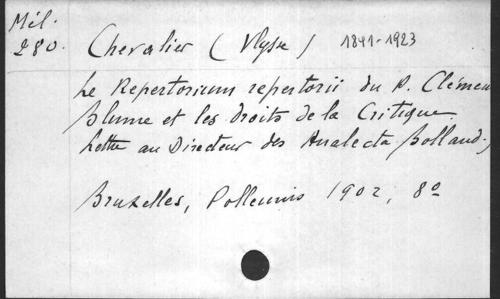 Mél.
280.
Chevalier (Ulysse) 1841-1923
Le Repertorium repertorii du P. Clément
Blume et les droits de la Critique.
Lettre au Directeur des Analecta Bolland.
Bruxelles, Polleunis 1902, 8º